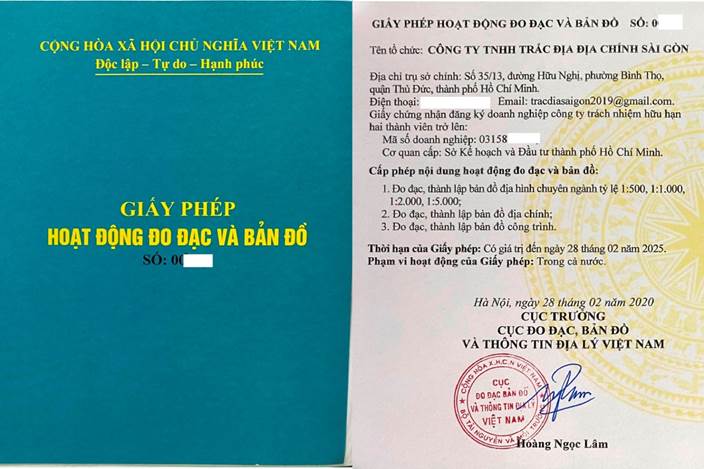 CỘNG HÒA XÃ HỘI CHỦ NGHĨA VIỆT NAM
Độc lập – Tự do – Hạnh phúc
GIẤY PHÉP
HOẠT ĐỘNG ĐO ĐẠC VÀ BẢN ĐỒ
SỐ: 00
GIẤY PHÉP HOẠT ĐỘNG ĐO ĐẠC VÀ BẢN ĐỒ SỐ: 0
Tên tổ chức: CÔNG TY TNHH TRẮC ĐỊA ĐỊA CHÍNH SÀI GÒN
Địa chỉ trụ sở chính: Số 35/13, đường Hữu Nghị, phường Bình Thọ,
quận Thủ Đức, thành phố Hồ Chí Minh.
Điện thoại: Email: tracdiasaigon2019@gmail.com.
Giấy chứng nhận đăng ký doanh nghiệp công ty trách nhiệm hữu hạn
hai thành viên trở lên:
Mã số doanh nghiệp: 03158
Cơ quan cấp: Sở Kế hoạch và Đầu tư thành phố Hồ Chí Minh.
Cấp phép nội dung hoạt động đo đạc và bản đồ:
1. Đo đạc, thành lập bản đồ địa hình chuyên ngành tỷ lệ 1:500, 1:1.000,
1:2.000, 1:5.000;
2. Đo đạc, thành lập bản đồ địa chính;
3. Đo đạc, thành lập bản đồ công trình.
Thời hạn của Giấy phép: Có giá trị đến ngày 28 tháng 02 năm 2025.
Phạm vi hoạt động của Giấy phép: Trong cả nước.
Hà Nội, ngày 28 tháng 02 năm 2020
CỤC TRƯỞNG
CỤC ĐO ĐẠC, BẢN ĐỒ
VÀ THÔNG TIN ĐỊA LÝ VIỆT NAM
CỘNG HÒA X.H.C.N VIỆT NAM
CỤC
ĐO ĐẠC BẢN ĐỒ
VÀ THÔNG TIN ĐỊA LÝ
VIỆT NAM
BỘ TÀI NGUYÊN VÀ MÔI TRƯỜNG
Hoàng Ngọc Lâm